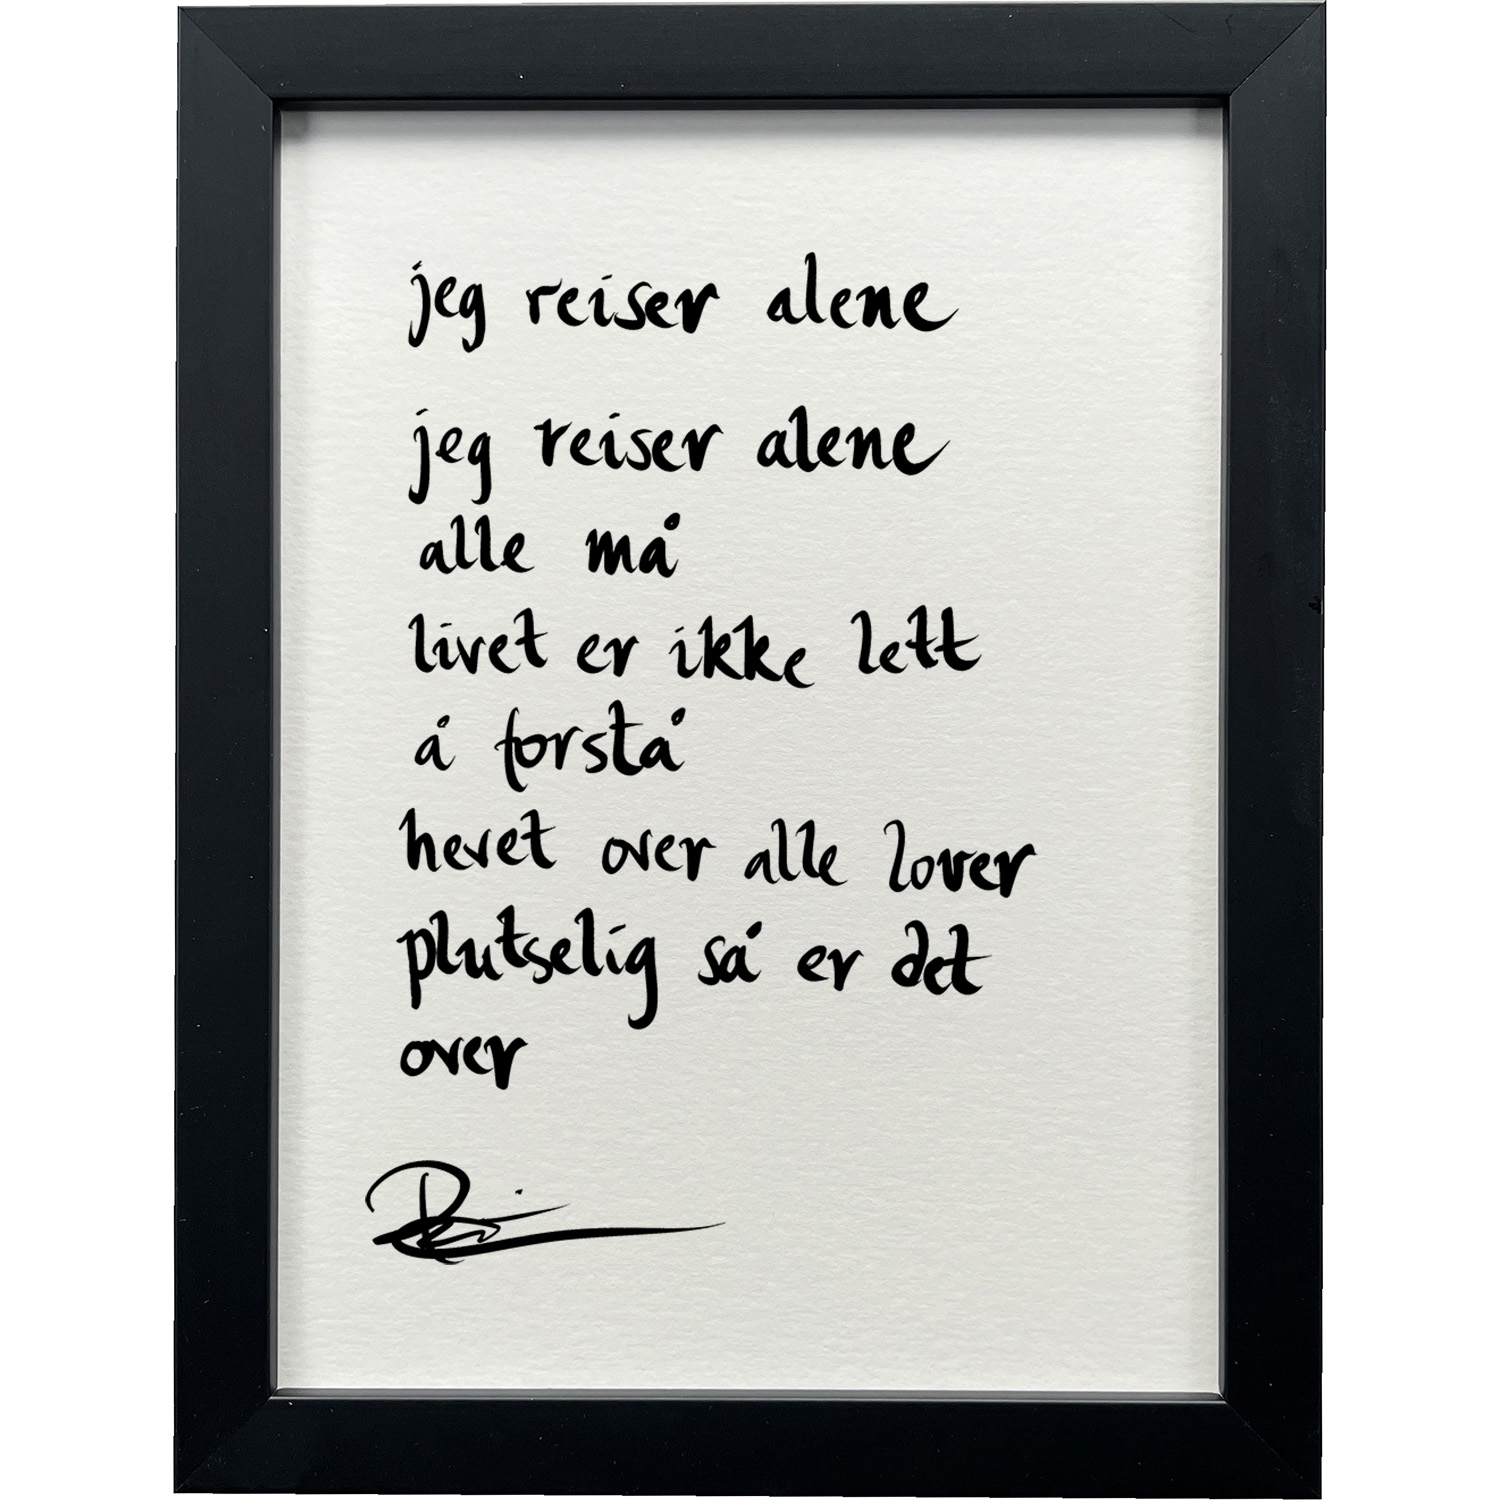 jeg reiser alene
jeg reiser alene
alle må
livet er ikke lett
å forstå
hevet over alle lover
plutselig så er det
over